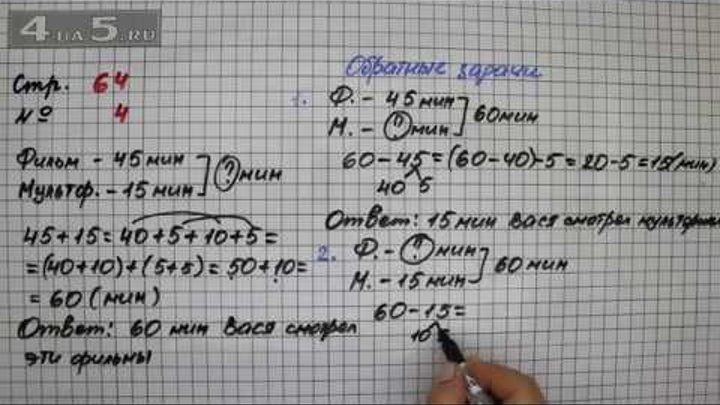 4 на 5.RU
Стр. 64
№ 4
Фильм - 45 мин
Мультф. - 15 мин
? мин
45 + 15 = 40 + 5 + 10 + 5 =
= (40 + 10) + (5 + 5) = 50 + 10 =
= 60 (мин)
Ответ: 60 мин Вася смотрел
эти фильмы
Обратные задачи
1.
Ф. - 45 мин
М. - ? мин
60 мин
60 - 45 = (60 - 40) - 5 = 20 - 5 = 15 (мин)
40 5
Ответ: 15 мин Вася смотрел
2.
Ф. - ? мин
М. - 15 мин
60 мин
60 - 15 =
10